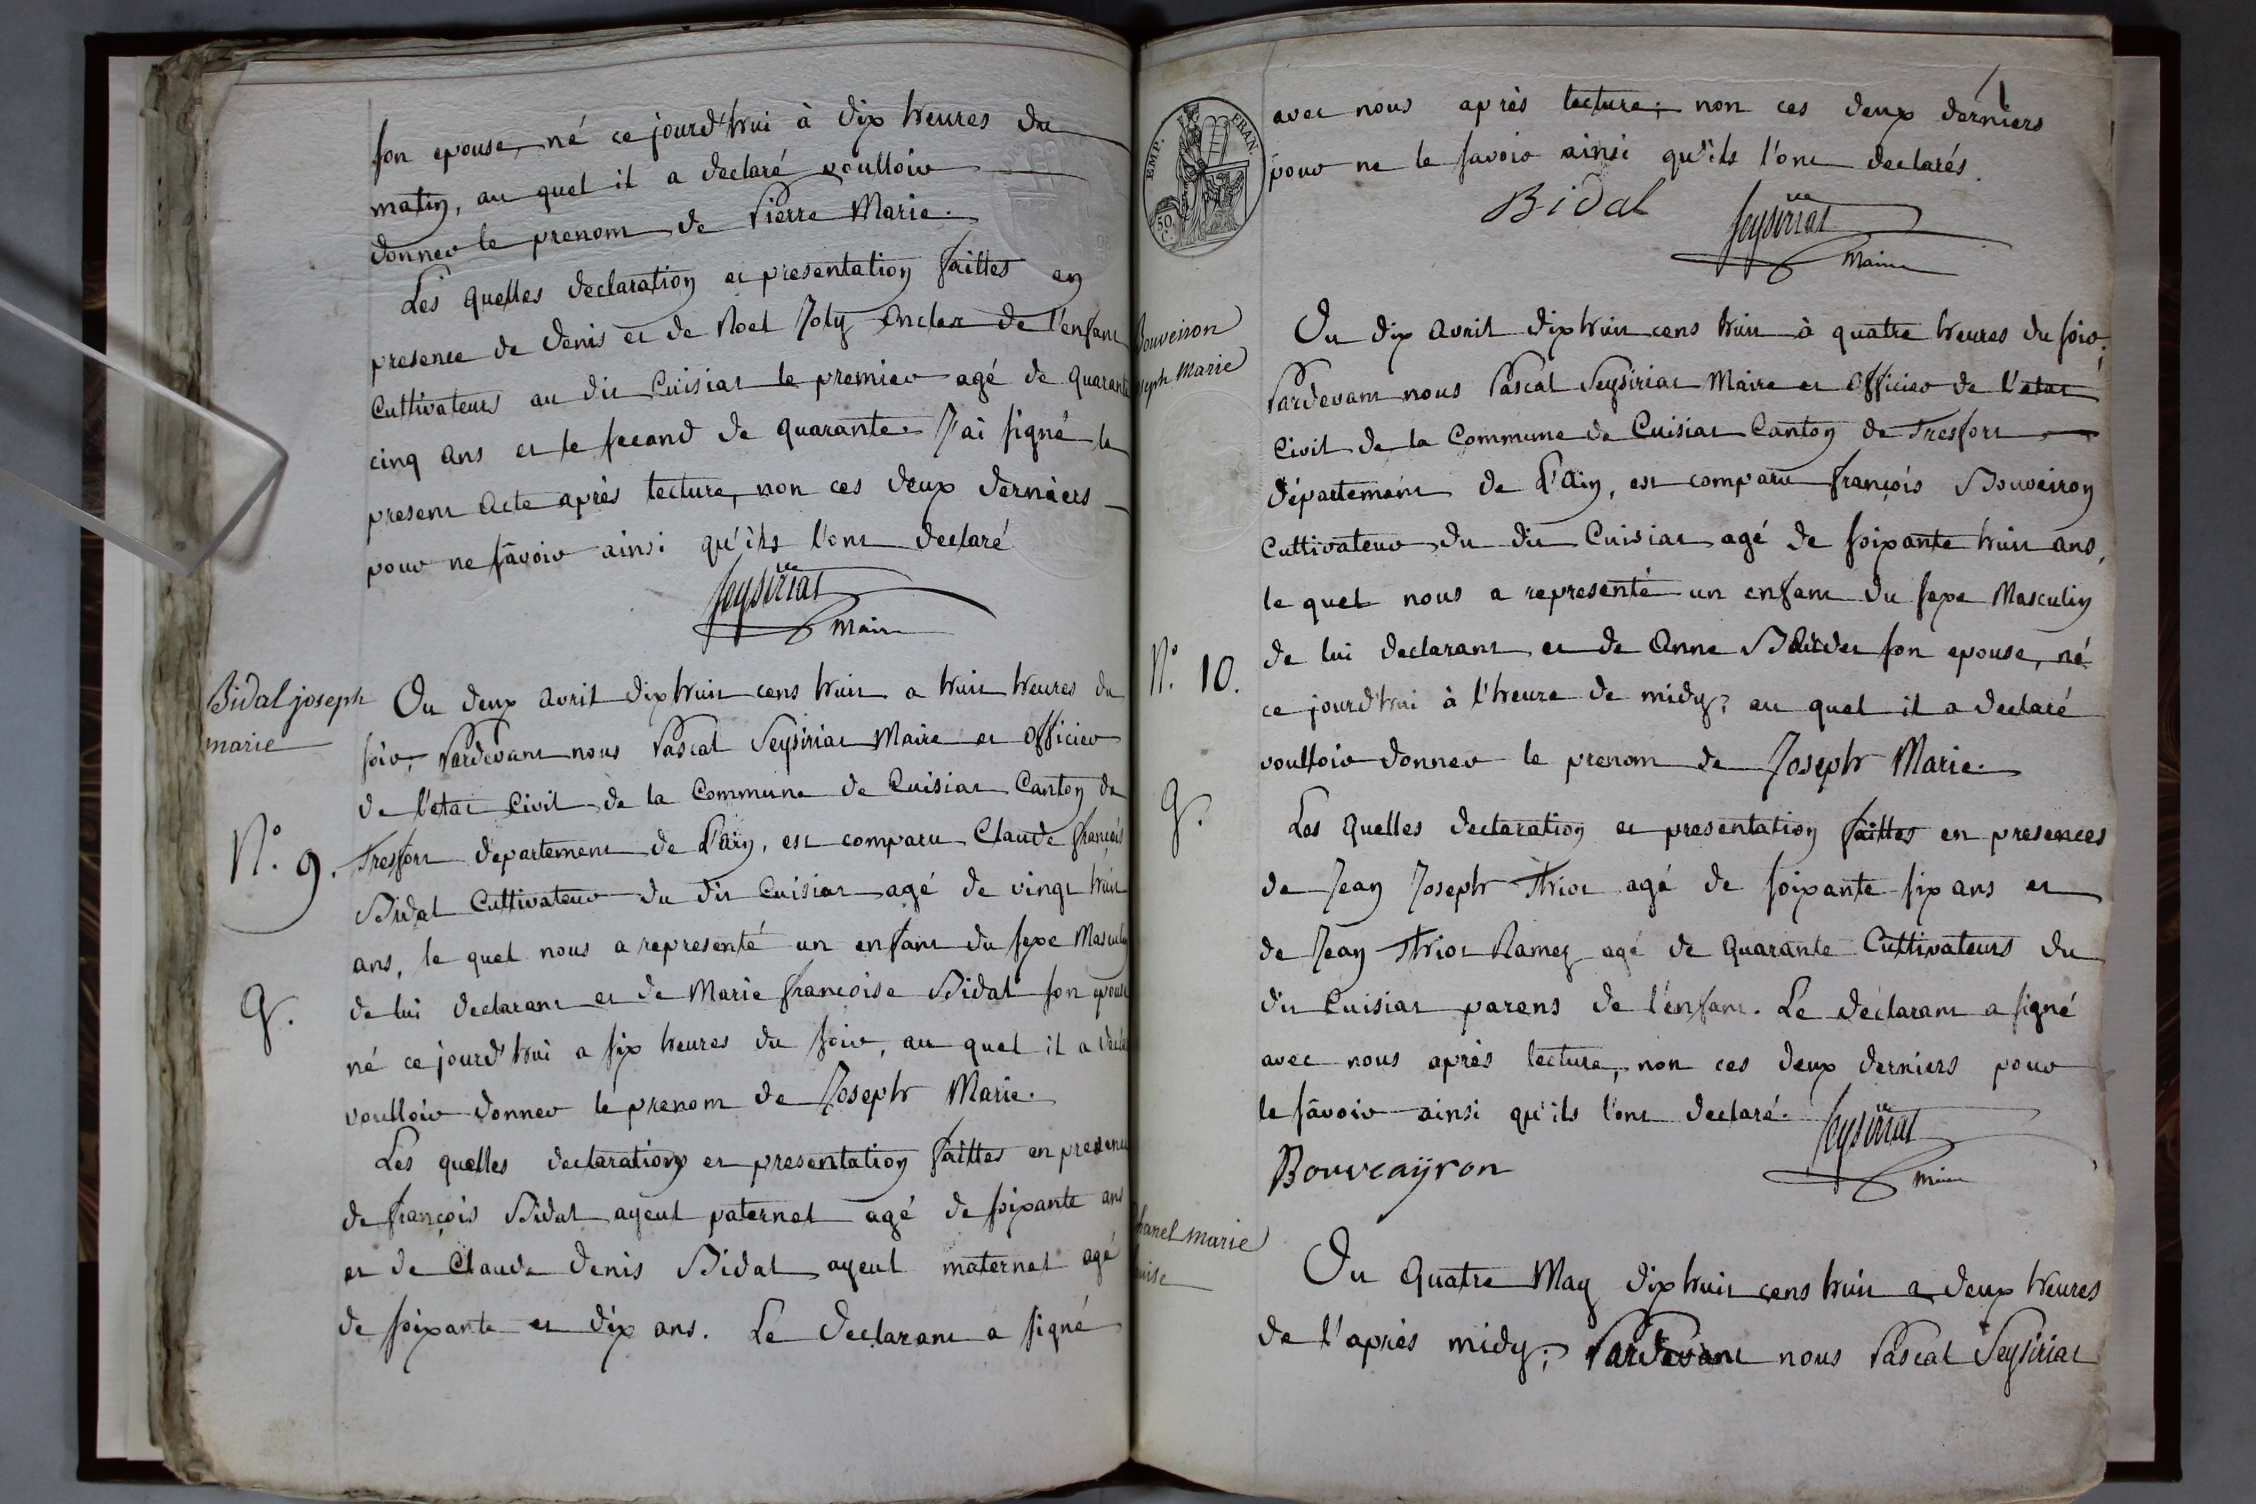 son epouse, né ce jourd'hui à dix heures du
matin, au quel il a declaré voulloir
donner le prenom de Pierre Marie.
Les quelles declaration et presentation faittes en
presence de denis et de Noel Joly oncles de l'enfant
Cultivateurs au dit Cuisiat le premier agé de quarante
cinq ans et le second de quarante. J'ai signé le
present acte après lecture, non ces deux derniers
pour ne savoir ainsi qu'ils l'ont declaré
Seysiriat
Maire
Bidal joseph
marie
N.° 9.
G.
Du deux avril dix huit cens huit a huit heures du
soir, Pardevant nous Pascal Seysiriat Maire et officier
de l'etat Civil de la Commune de Cuisiat Canton de
Tresfort departement de L'ain, est comparu Claude françois
Bidal Cultivateur du dit Cuisiat agé de vingt huit
ans, le quel nous a representé un enfant du sexe Masculin
de lui declarant et de Marie françoise Bidal son epouse
né ce jourd'hui a six heures du soir, au quel il a declaré
voulloir donner le prenom de Joseph Marie.
Les quelles declarations et presentation faittes en presence
de françois Bidal ayeul paternel agé de soixante ans
et de Claude denis Bidal ayeul maternel agé
de soixante et dix ans. Le declarant a signé
EMP. FRAN.
50 C.
avec nous après lecture, non ces deux derniers
pour ne le savoir ainsi qu'ils l'ont declarés.
Bidal Seysiriat
Maire
Bouveiron
joseph Marie
N.° 10.
G.
Du dix avril dix huit cens huit à quatre heures du soir,
Pardevant nous Pascal Seysiriat Maire et officier de l'etat
Civil de la Commune de Cuisiat Canton de Tresfort
département de L'Ain, est comparu françois Bouveiron
Cultivateur du dit Cuisiat agé de soixante huit ans,
le quel nous a representé un enfant du sexe Masculin
de lui declarant et de Anne son epouse, né
ce jourd'hui à l'heure de midy, au quel il a declaré
voulloir donner le prenom de Joseph Marie.
Les quelles declaration et presentation faittes en presences
de Jean Joseph Thiot agé de soixante six ans et
de Jean Thiot Ramez agé de quarante Cultivateurs du
dit Cuisiat parens de l'enfant. Le declarant a signé
avec nous après lecture, non ces deux derniers pour
le savoir ainsi qu'ils l'ont declaré.
Seysiriat
Bouveayron Maire
marie
Du quatre May dix huit cens huit a deux heures
de l'après midy; Pardevant nous Pascal Seysiriat